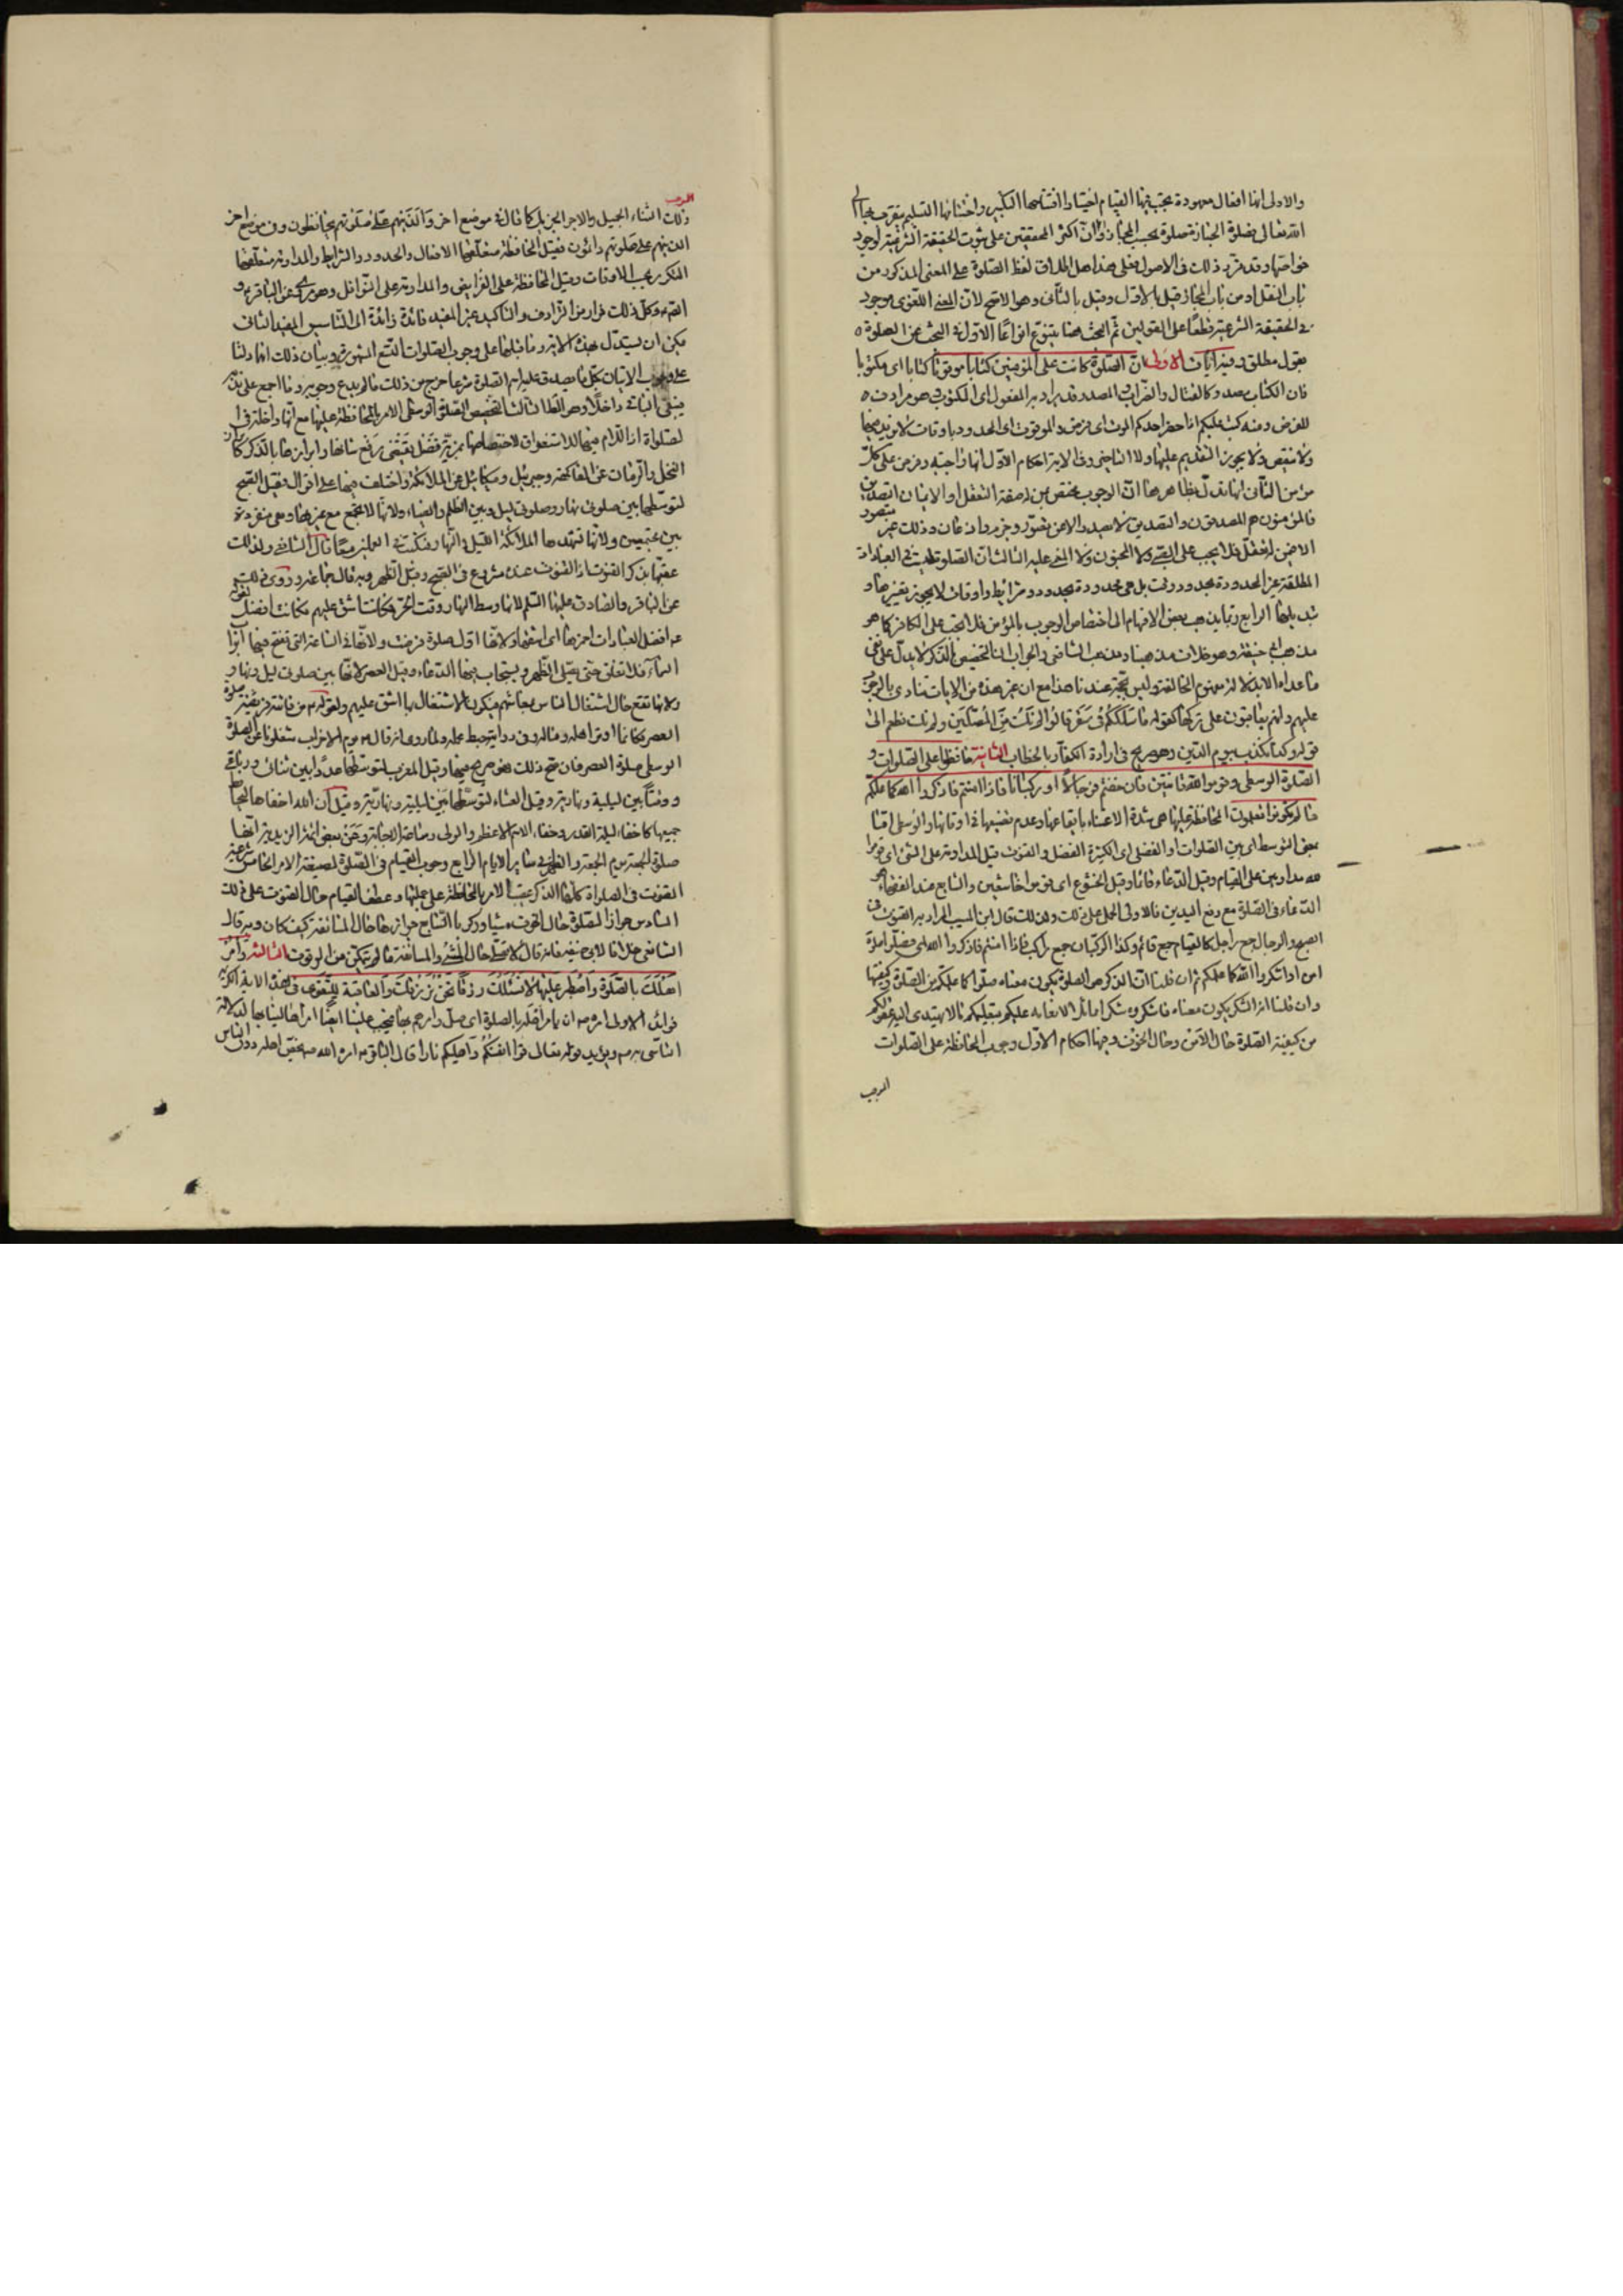 والاولى انها افعال معهودة يجب فيها القيام اختيارا افتتاحها التكبير واختتامها التسليم يتقرب بها الى
الله تعالى فصلوة الجنازة صلوة بحسب المجاز وان اكثر المحققين على ثبوت الحقيقة الشرعية لوجود
خواصها وقد قرر ذلك في الاصول فعلى هذا هل اطلاق لفظ الصلوة على المعنى المذكور من
باب النقل او من باب المجاز قيل بالاول وقيل بالثاني وهو الاصح لان المعنى اللغوى موجود
في الحقيقة الشرعية قطعا على القولين ثم البحث هنا يتنوع انواعا الاول في البحث عن الصلوة
بقول مطلق وفيه آيات الاولى ان الصلوة كانت على المؤمنين كتابا موقوتا كتابا اى مكتوبا
فان الكتاب مصدر كالقتال والضراب والمصدر قد يراد به المفعول اى المكتوب هو مرادف
للفرض ومنه كتب عليكم اذا حضر احدكم الموت اى فرض والموقوت اى المحدود باوقات لا يزيد فيها
ولا ينقص ولا يجوز التقديم عليها ولا التاخير وفي الاية احكام الاول انها واجبة وفرض على كل
مؤمن الثاني انها تدل بظاهرها ان الوجوب مختص بمن له صفة التعقل او الايمان التصديق
فالمؤمنون هم المصدقون والتصديق لا يصدر الا عن تصور وجزم واذعان وذلك غير متصور
الا ممن له تعقل فلا يجب على الصبى ولا المجنون ولا المغمى عليه الثالث ان الصلوة ليست في العبادات
المطلقة غير المحدودة بحد ووقت بل هى محدودة بحدود وشرائط واوقات لا يجوز تغييرها و
تبديلها الرابع ربما يذهب بعض الافهام الى اختصاص الوجوب بالمؤمن فلا يجب على الكافر كما هو
مذهب ابى حنيفة وهو خلاف مذهبنا ومذهب الشافعى والجواب ان التخصيص بالذكر لا يدل على نفى
ما عداه الا بدلالة مفهوم المخالفة وليس بحجة عندنا هذا مع ان غير هذه من الايات تنادى بالوجوب
عليهم وانهم يعاقبون على تركها كقوله ما سلككم في سقر قالوا لم نك من المصلين ولم نك نطعم الى
قوله وكنا نكذب بيوم الدين وهو صريح في ارادة الكفار بالخطاب الثانية حافظوا على الصلوات و
الصلوة الوسطى وقوموا لله قانتين فان خفتم فرجالا او ركبانا فاذا امنتم فاذكروا الله كما علمكم
ما لم تكونوا تعلمون المحافظة عليها هى شدة الاعتناء بايقاعها وعدم تضييعها في اوقاتها والوسطى اما
بمعنى التوسط اى بين الصلوات او الفضلى اى الكثيرة الفضل والقنوت قيل المداومة على الشئ اى قوموا
لله مداومين على القيام وقيل الدعاء قائما وقيل الخشوع اى قوموا خاشعين والشايع عند الفقهاء هو
الدعاء في الصلوة مع رفع اليدين فالاولى الحمل على ذلك ولذلك قال ابن المسيب المراد به القنوت في
الصبح والرجال جمع راجل كالقيام جمع قائم وكذا الركبان جمع راكب فاذا امنتم فاذكروا الله اى فصلوا صلوة
امن او اشكروا الله كما علمكم ثم ان قلنا ان الذكر هو الصلوة يكون معناه صلوا كما علمكم من الصلوة وكيفيتها
وان قلنا انه الشكر يكون معناه فاشكروه شكرا ماثل لانعامه عليكم بتعليمكم ما لا يهتدى اليه عقولكم
من كيفية الصلوة حال الامن وحال الخوف وفيها احكام الاول وجوب المحافظة على الصلوات
الموجب
الموجب
ذلك الثناء الجميل والاجر الجزيل كما قال في موضع اخر والذين هم على صلوتهم يحافظون وفي موضع اخر
الذين هم على صلوتهم دائمون فقيل المحافظة متعلقها الافعال والحدود والشرايط والمداومة متعلقها
التكرر بحسب الاوقات وقيل المحافظة على الفرايض والمداومة على النوافل وهو مروى عن الباقر ع و
القصد وكل ذلك فرار من الترادف والتاكيد غير المفيد فائدة زائدة الى التاسيس المفيد الثاني
يمكن ان يستدل بهذه الاية وما قبلها على وجوب الصلوات التسع المشهورة وبيان ذلك انها دلتا
على وجوب الاتيان بكل ما يصدق عليه اسم الصلوة شرعا خرج من ذلك ما لم يدع وجوبه وما اجمع على ندبه
فيبقى الباقى داخلا وهو المط الثالث التخصيص الصلوة الوسطى الامر بالمحافظة عليها مع انها داخلة في
لصلوات اذ اللام فيها للاستغراق لاختصاصها بمزية فضل يقتضى رفع شانها وابرازها بالذكر كما كان
النخل والرمان عن الفاكهة وجبرئيل وميكائيل عن الملائكة واختلف فيها على اقوال فقيل الصبح
لتوسطها بين صلوتى نهار وصلوتى ليل وبين الظلم والضياء ولانها لا تجمع مع غيرها وهى منفردة
بين مجتمعين ولانها تشهدها الملائكة الليل والنهار فتكتب في العملين معا قال الشافعى ولذلك
عقبها بذكر القنوت اذ القنوت عنده مشروع في الصبح وقيل الظهر وبه قال جماعة وروى ذلك
عن الباقر والصادق عليهما السلم لانها وسط النهار وقت الحر فكانت اشق عليهم فكانت افضل لقوله
عم افضل العبادات احمزها اى اشقها ولانها اول صلوة فرضت ولانها في الساعة التى تفتح فيها ابواب
السماء فلا تغلق حتى يصلى الظهر ويستجاب فيها الدعاء وقيل العصر لانها بين صلوتى ليل ونهار و
ولانها تقع حال اشتغال الناس بمعاشهم فيكون الاشتغال بها اشق عليهم ولقوله ص من فاتته فريضة صلوة
العصر فكانما اوتر اهله وماله وفى رواية حبط عمله ولما روى انه قال ص يوم الاحزاب شغلونا عن الصلوة
الوسطى صلوة العصر فان صح ذلك فهو صريح فيها وقيل المغرب لتوسطها عددا بين ثنائى ورباعى
ووقتا بين ليلية ونهارية وقيل العشاء لتوسطها بين ليلية ونهارية وقيل ان الله اخفاها ليحافظ
جميعها كاخفاء ليلة القدر وخفاء الاسم الاعظم والولى وساعة الاجابة وعن بعض ائمة الزيدية انها
صلوة الجمعة يوم الجمعة والظهر في ساير الايام الرابع وجوب القيام في الصلوة لصيغة الامر الخامس شرعية
القنوت في الصلوات كلها الذكر عقيب الامر بالمحافظة على جملتها وعطف القيام حال القنوت على ذلك
السادس جواز الصلوة حال الخوف مشيا وركوبا السابع جوازها حال المسايفة كيف كان وبه قال
الشافعى خلافا لابى حنيفة فانه قال لا يصلى حال المشى والمسايفة ما لم يتمكن من الوقوف الثالثة وامر
اهلك بالصلوة واصطبر عليها لا نسئلك رزقا نحن نرزقك والعاقبة للتقوى في هذه الاية الكريمة
فوايد الاولى امره ص ان يامر اهله بالصلوة اى صل وامرهم بها فيجب علينا ايضا امر اهالينا بها لدلالة
التاسى به ص ويؤيد قوله تعالى قوا انفسكم واهليكم نارا قال الباقر ع امره الله ص بحض اهله دون الناس